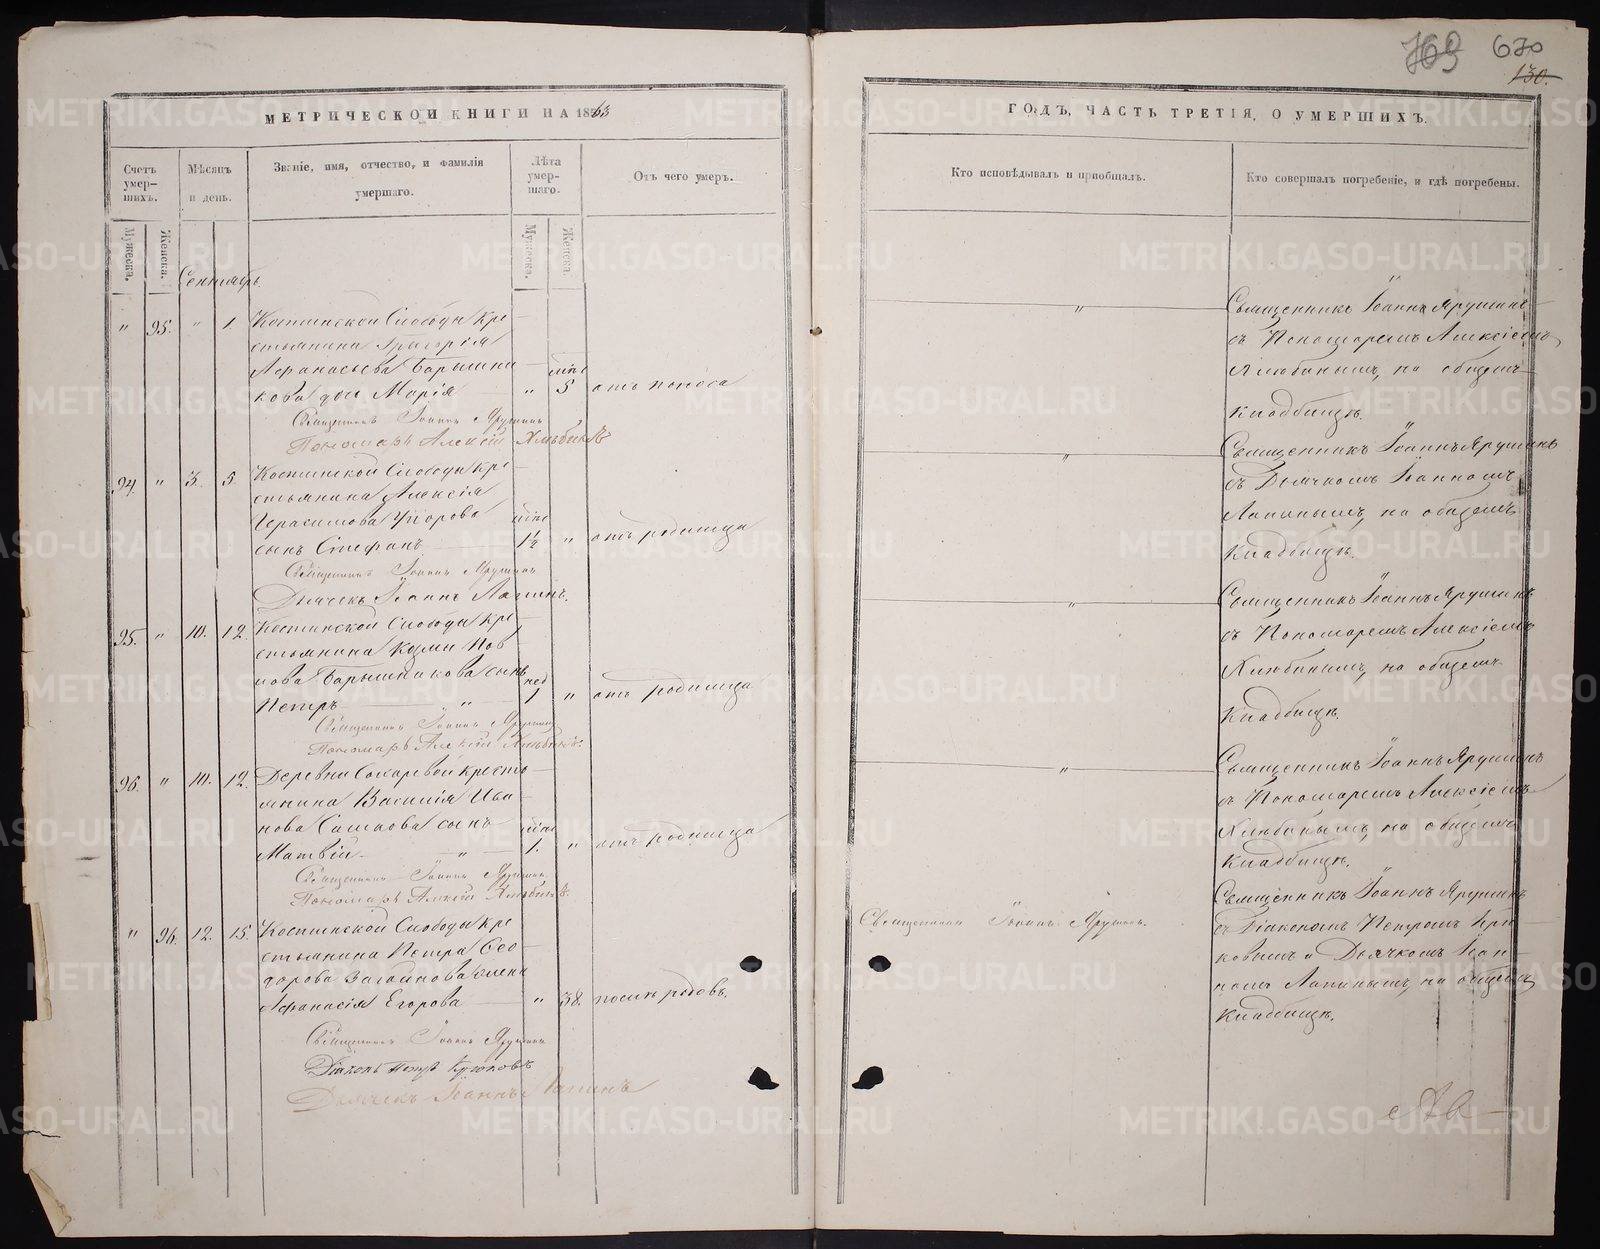 769 670
130.
МЕТРИЧЕСКОЙ КНИГИ НА 1863
ГОДЪ, ЧАСТЬ ТРЕТІЯ, О УМЕРШИХЪ.
Счетъ умер-шихъ.
Мѣсяцъ и день.
Званіе, имя, отчество, и фамилія умершаго.
Лѣта умер-шаго.
Отъ чего умеръ.
Кто исповѣдывалъ и пріобщалъ.
Кто совершалъ погребеніе, и гдѣ погребены.
Мужеска. Женска.
Мужеска. Женска.
Сентябрь.
" 95. " 1.
Костинской Слободы кре-
стьянина Григорія
Афанасьева Барышни
кова дочь Марія " 5 отъ поноса
Священникъ Іоаннъ Ярушинъ
Пономарь Алексій Хлѣбинъ
Священникъ Іоаннъ Ярушинъ
съ Пономаремъ Алексіемъ
Хлѣбинымъ, на общемъ
кладбищѣ.
94. " 3. 5.
Костинской Слободы кре-
стьянина Алексія
Герасимова Упорова
сынъ Стефанъ 1½ " отъ родимца
Священникъ Іоаннъ Ярушинъ
Дьячекъ Іоаннъ Лапинъ.
Священникъ Іоаннъ Ярушинъ
съ Дьячкомъ Іоанномъ
Лапинымъ, на общемъ
кладбищѣ.
95. " 10. 12.
Костинской Слободы кре-
стьянина Козмы
Барышникова сынъ нед
Петръ " 1 " отъ родимца
Священникъ Іоаннъ Ярушинъ
Пономарь Алексій Хлѣбинъ.
Священникъ Іоаннъ Ярушинъ
съ Пономаремъ Алексіемъ
Хлѣбинымъ, на общемъ
кладбищѣ.
96. " 10. 12.
Деревни кресть-
янина Василія Ива-
нова сынъ
Матвій " 1. " отъ родимца
Священникъ Іоаннъ Ярушинъ
Пономарь Алексій Хлѣбинъ.
Священникъ Іоаннъ Ярушинъ
съ Пономаремъ Алексіемъ
Хлѣбинымъ, на общемъ
кладбищѣ.
" 96. 12. 15.
Костинской Слободы кре
стьянина Петра Ѳео-
дорова жена
Афанасія Егорова " 38. послѣ родовъ.
Священникъ Іоаннъ Ярушинъ
Діаконъ Петръ Крюковъ
Дьячекъ Іоаннъ Лапинъ
Священникъ Іоаннъ Ярушинъ.
Священникъ Іоаннъ Ярушинъ
съ Діакономъ Петромъ Крю
ковымъ и Дьячкомъ Іоан
номъ Лапинымъ, на общемъ
кладбищѣ.
METRIKI.GASO-URAL.RU